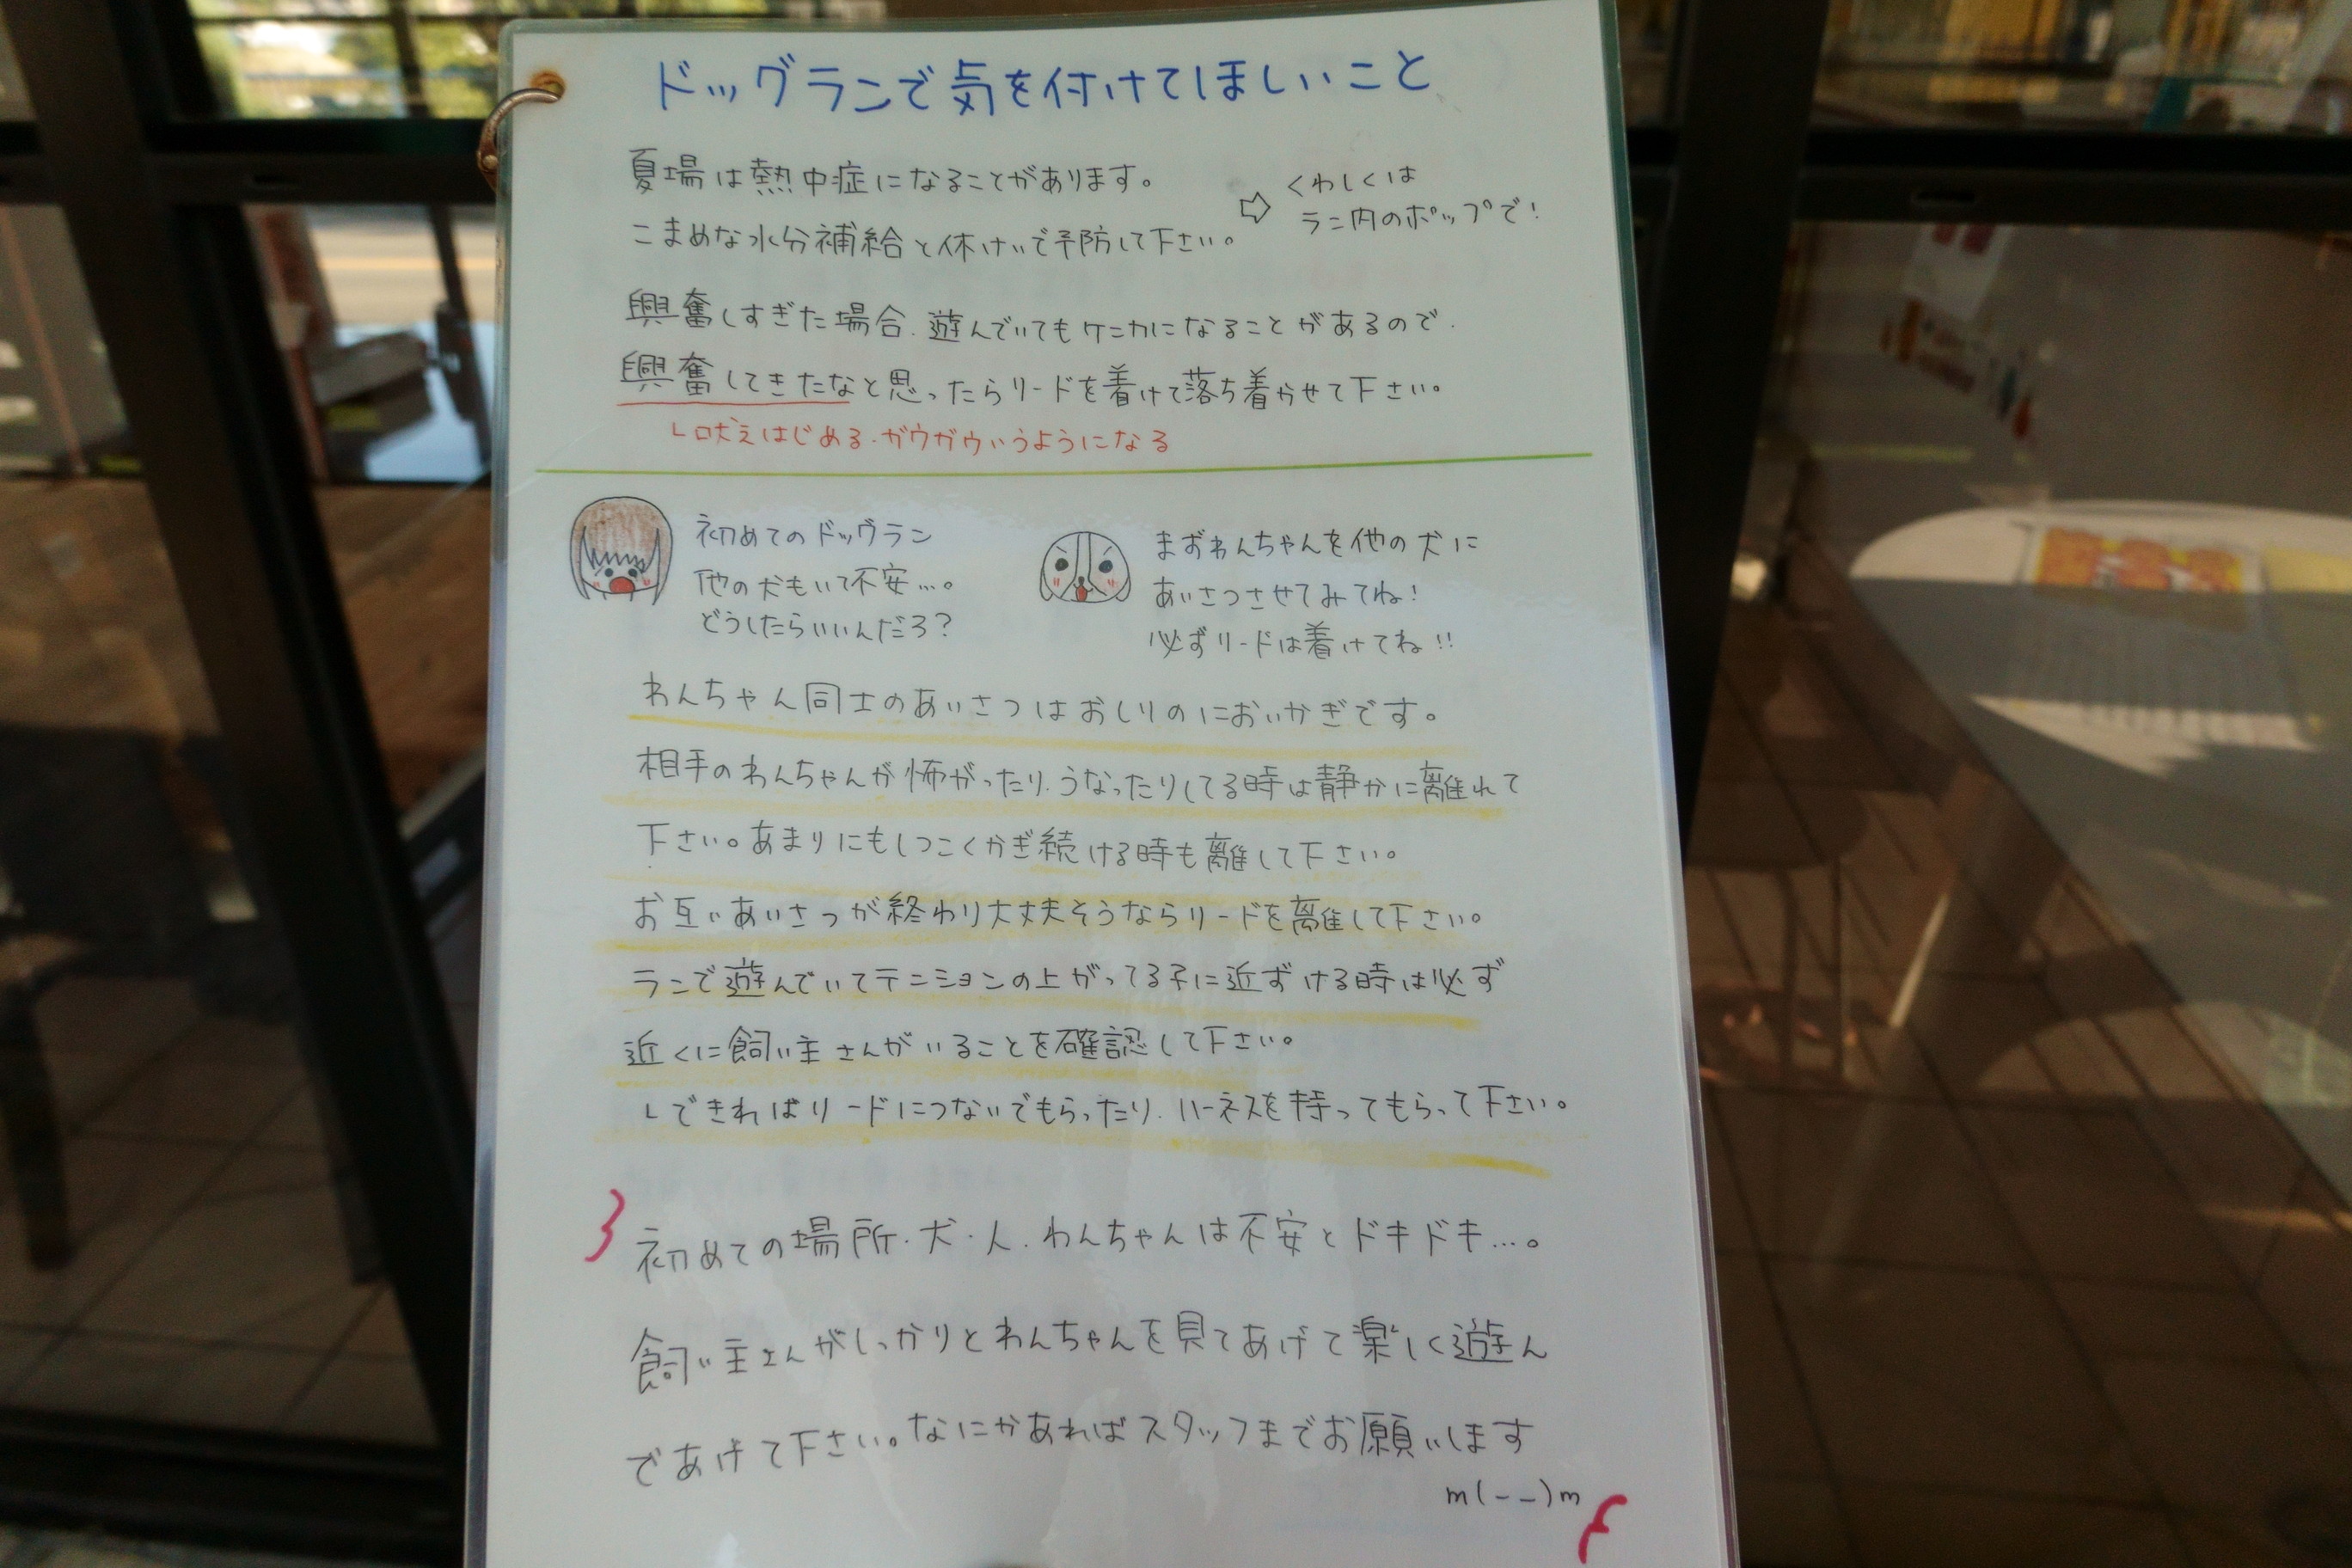 ドッグランで気を付けてほしいこと
夏場は熱中症になることがあります。
こまめな水分補給と休けいで予防して下さい。
⇨ くわしくは
ラン内のポップで!
興奮しすぎた場合、遊んでいてもケンカになることがあるので、
興奮してきたなと思ったらリードを着けて落ち着かせて下さい。
└吠えはじめる・ガウガウいうようになる
初めてのドッグラン
他の犬もいて不安…。
どうしたらいいんだろ?
まずわんちゃんを他の犬に
あいさつさせてみてね!
必ずリードは着けてね!!
わんちゃん同士のあいさつはおしりのにおいかぎです。
相手のわんちゃんが怖がったり、うなったりしてる時は静かに離れて
下さい。あまりにもしつこくかぎ続ける時も離して下さい。
お互いあいさつが終わり大丈夫そうならリードを離して下さい。
ランで遊んでいてテンションの上がってる子に近ずける時は必ず
近くに飼い主さんがいることを確認して下さい。
└できればリードにつないでもらったり、ハーネスを持ってもらって下さい。
初めての場所・犬・人、わんちゃんは不安とドキドキ…。
飼い主さんがしっかりとわんちゃんを見てあげて楽しく遊ん
であげて下さい。なにかあればスタッフまでお願いします
m(--)m